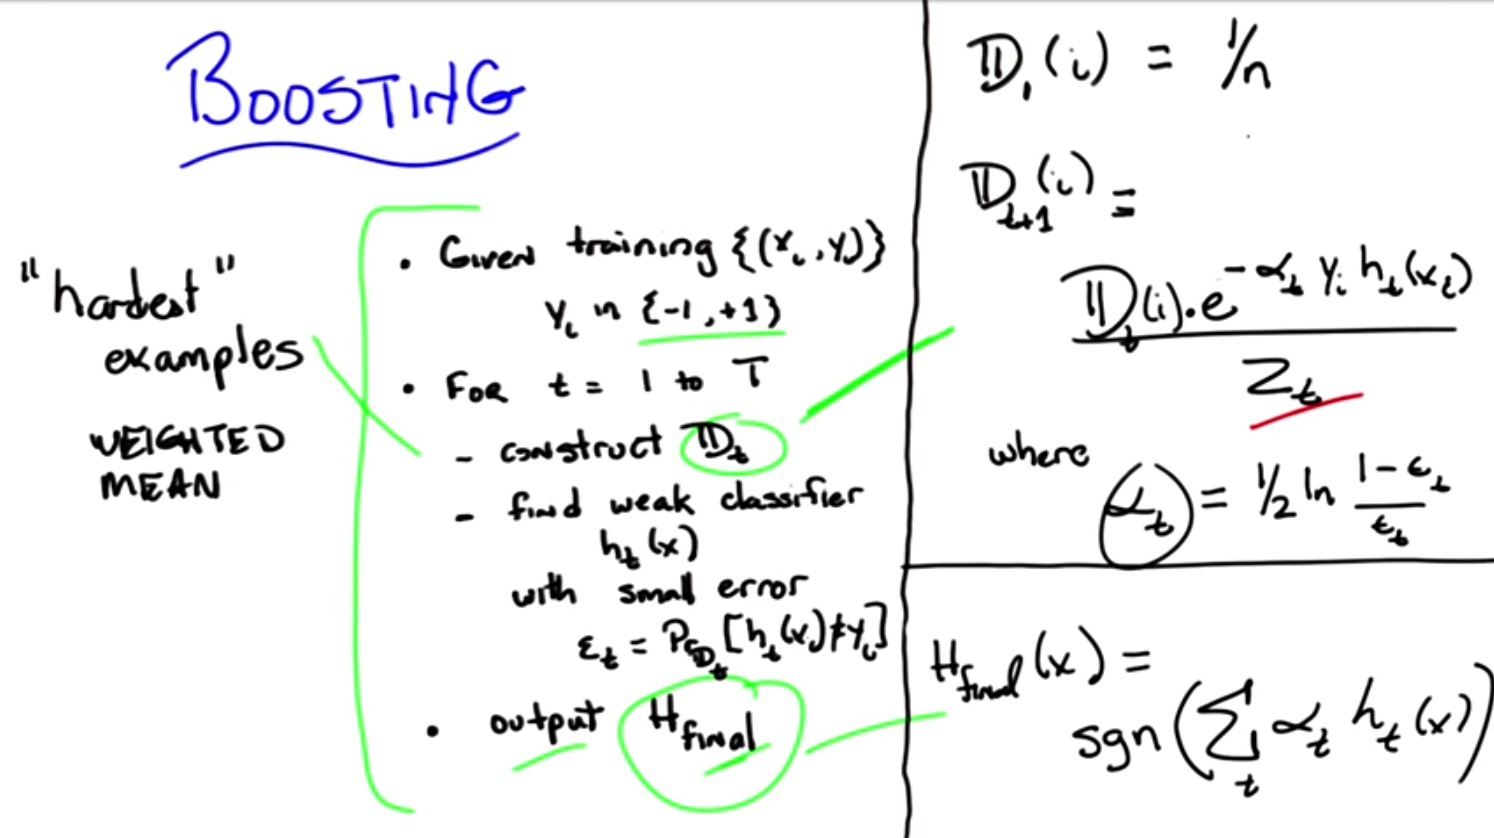 BOOSTING
"hardest"
examples
WEIGHTED
MEAN
• Given training {(xᵢ, yᵢ)}
yᵢ in {-1, +1}
• For t = 1 to T
- construct 𝔻ₜ
- find weak classifier
hₜ(x)
with small error
εₜ = Pr_𝔻ₜ [hₜ(xᵢ) ≠ yᵢ]
• output H_final
𝔻₁(i) = 1/n
𝔻ₜ₊₁(i) =
𝔻ₜ(i) · e^(-αₜ yᵢ hₜ(xᵢ))
Zₜ
where
αₜ = 1/2 ln (1-εₜ)/εₜ
H_final(x) =
sgn(∑ₜ αₜ hₜ(x))